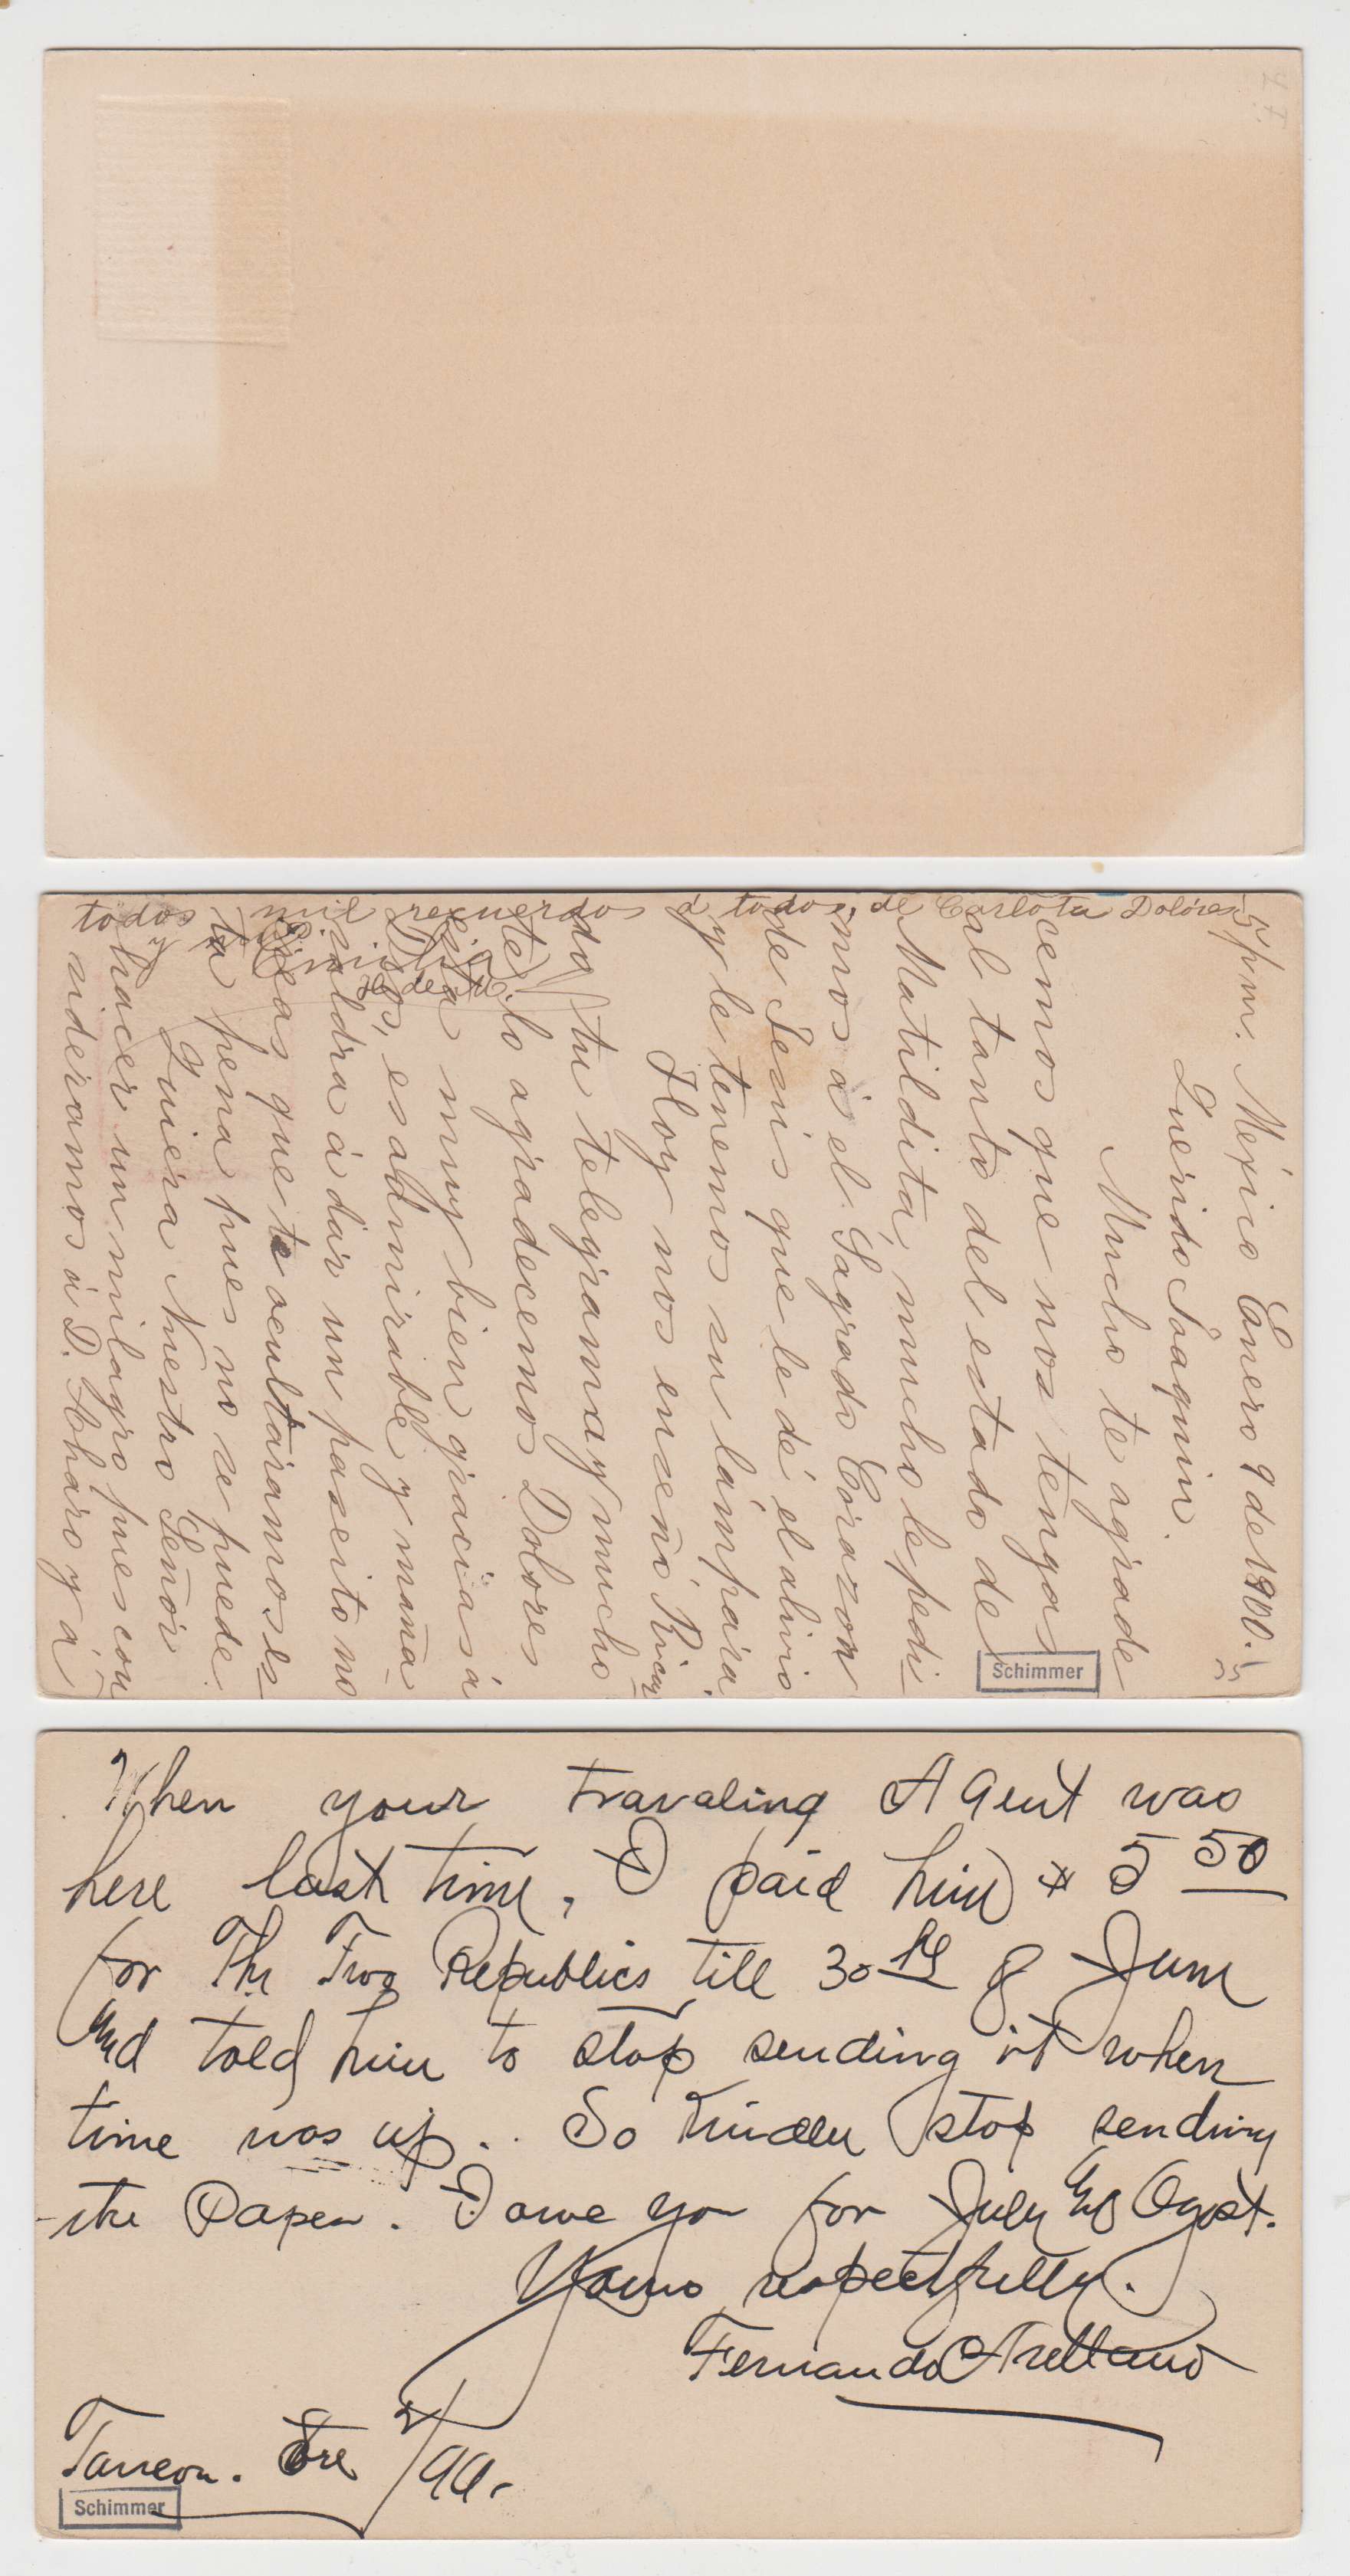 5 p. m. México Enero 9 de 1900.
Querido Joaquin.
Mucho te agrade
cemos que nos tengas
al tanto del estado de
Matildita, mucho le pedi
mos á el Sagrado Corazon
de Jesus que le dé el alivio
y le tenemos su lámpara.
Hoy nos enseñó
tu telegrama y mucho
te lo agradecemos Dolores
está muy bien gracias á
Dios, es admirable y maña
saldra á dar un paseito no
creas que te ocultaramos es
ta pena pues no se puede.
Quiera Nuestro Señor
hacer un milagro pues con
sideramos á D. y á
todos mil recuerdos á todos, de Carlota Dolores
y
35
Schimmer
When your travaling Agent was
here last time, I paid him $ 5 50
for The Two Republics till 30th of June
and told him to stop sending it when
time was up. So kindly stop sending
the Paper. I owe you for July and Ogost.
Yours respectfully.
Fernando Arellano
Torreon. 99.
Schimmer